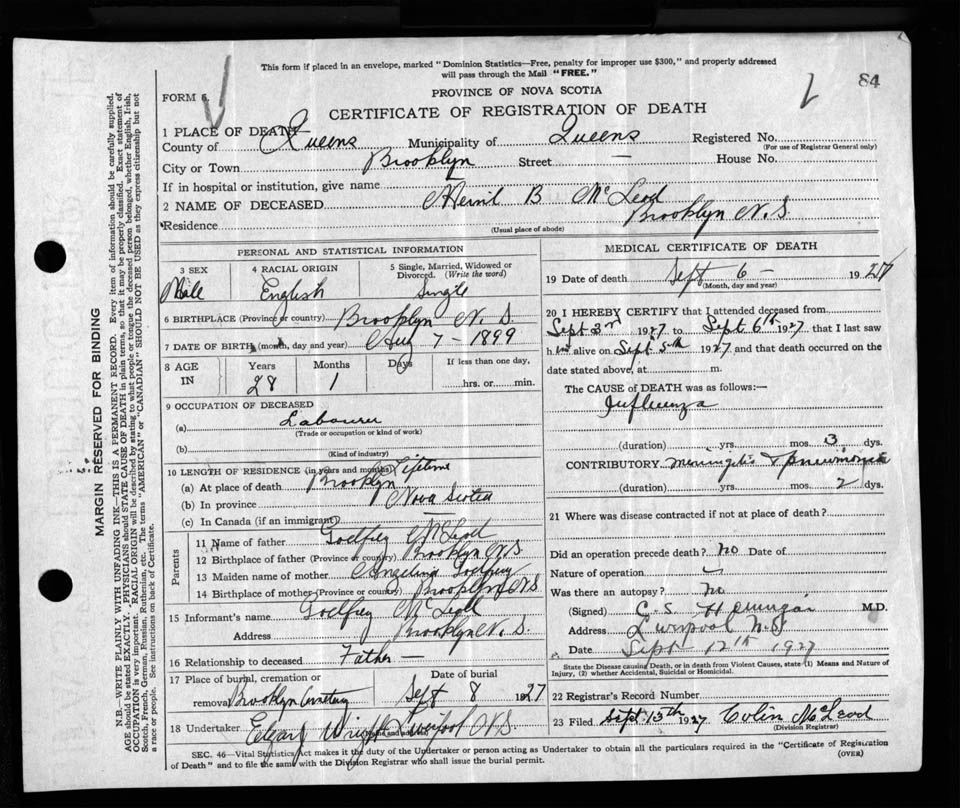 This form if placed in an envelope, marked "Dominion Statistics—Free, penalty for improper use $300," and properly addressed
will pass through the Mail "FREE."
84
FORM 6.
PROVINCE OF NOVA SCOTIA
CERTIFICATE OF REGISTRATION OF DEATH
1 PLACE OF DEATH
County of Queens Municipality of Queens Registered No.
(For use of Registrar General only)
City or Town Brooklyn Street — House No.
If in hospital or institution, give name
2 NAME OF DECEASED B McLeod
Residence Brooklyn N.S.
(Usual place of abode)
PERSONAL AND STATISTICAL INFORMATION
3 SEX 4 RACIAL ORIGIN 5 Single, Married, Widowed or Divorced. (Write the word)
Male English Single
6 BIRTHPLACE (Province or country) Brooklyn N. S.
7 DATE OF BIRTH (month, day and year) 7 - 1899
8 AGE IN Years Months Days If less than one day,
28 1 hrs. or min.
9 OCCUPATION OF DECEASED
(a) Labourer
(Trade or occupation or kind of work)
(b)
(Kind of industry)
10 LENGTH OF RESIDENCE (in years and months) Lifetime
(a) At place of death Brooklyn
(b) In province Nova Scotia
(c) In Canada (if an immigrant) —
Parents
11 Name of father Godfrey McLeod
12 Birthplace of father (Province or country) Brooklyn N.S.
13 Maiden name of mother Angelina Godfrey
14 Birthplace of mother (Province or country) Brooklyn N.S.
15 Informant's name Godfrey McLeod
Address Brooklyn N. S.
16 Relationship to deceased Father —
17 Place of burial, cremation or removal Date of burial
Brooklyn Cemetery Sept 8 1927
18 Undertaker Wright Liverpool N.S.
(Name and address)
MEDICAL CERTIFICATE OF DEATH
19 Date of death Sept 6 - 1927
(Month, day and year)
20 I HEREBY CERTIFY that I attended deceased from
Sept 3rd 1927 to Sept 6th 1927 that I last saw
him alive on Sept 5th 1927 and that death occurred on the
date stated above, at m.
The CAUSE of DEATH was as follows:—
Influenza
(duration) yrs. mos. 3 dys.
CONTRIBUTORY meningitis & pneumonia
(duration) yrs. mos. 2 dys.
21 Where was disease contracted if not at place of death?
Did an operation precede death? no Date of
Nature of operation
Was there an autopsy? no
(Signed) C. S. M.D.
Address Liverpool N.S.
Date Sept 12th 1927
State the Disease causing Death, or in death from Violent Causes, state (1) Means and Nature of
Injury, (2) whether Accidental, Suicidal or Homicidal.
22 Registrar's Record Number
23 Filed Sept 13th 1927 Colin McLeod
(Division Registrar)
SEC. 46—Vital Statistics Act makes it the duty of the Undertaker or person acting as Undertaker to obtain all the particulars required in the "Certificate of Registration
of Death" and to file the same with the Division Registrar who shall issue the burial permit.
(OVER)
MARGIN RESERVED FOR BINDING
N.B.—WRITE PLAINLY WITH UNFADING INK—THIS IS A PERMANENT RECORD. Every item of information should be carefully supplied.
AGE should be stated EXACTLY. PHYSICIANS should STATE CAUSE OF DEATH in plain terms, so that it may be properly classified. Exact statement of
OCCUPATION is very important. RACIAL ORIGIN will be described by stating to what people or tongue the deceased person belonged, whether English, Irish,
Scotch, French, German, Russian, Ruthenian, etc. The terms "AMERICAN" or "CANADIAN" SHOULD NOT BE USED as they express citizenship but not
a race or people. See instructions on back of Certificate.